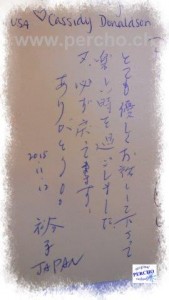 USA ♡ Cassidy Donaldson
www.percho.ch
とても優しくお話ししてくださって
楽しい時を過ごしました。
又、必ず来てます!
ありがとう
2015
11.13
JAPAN
PERCHO